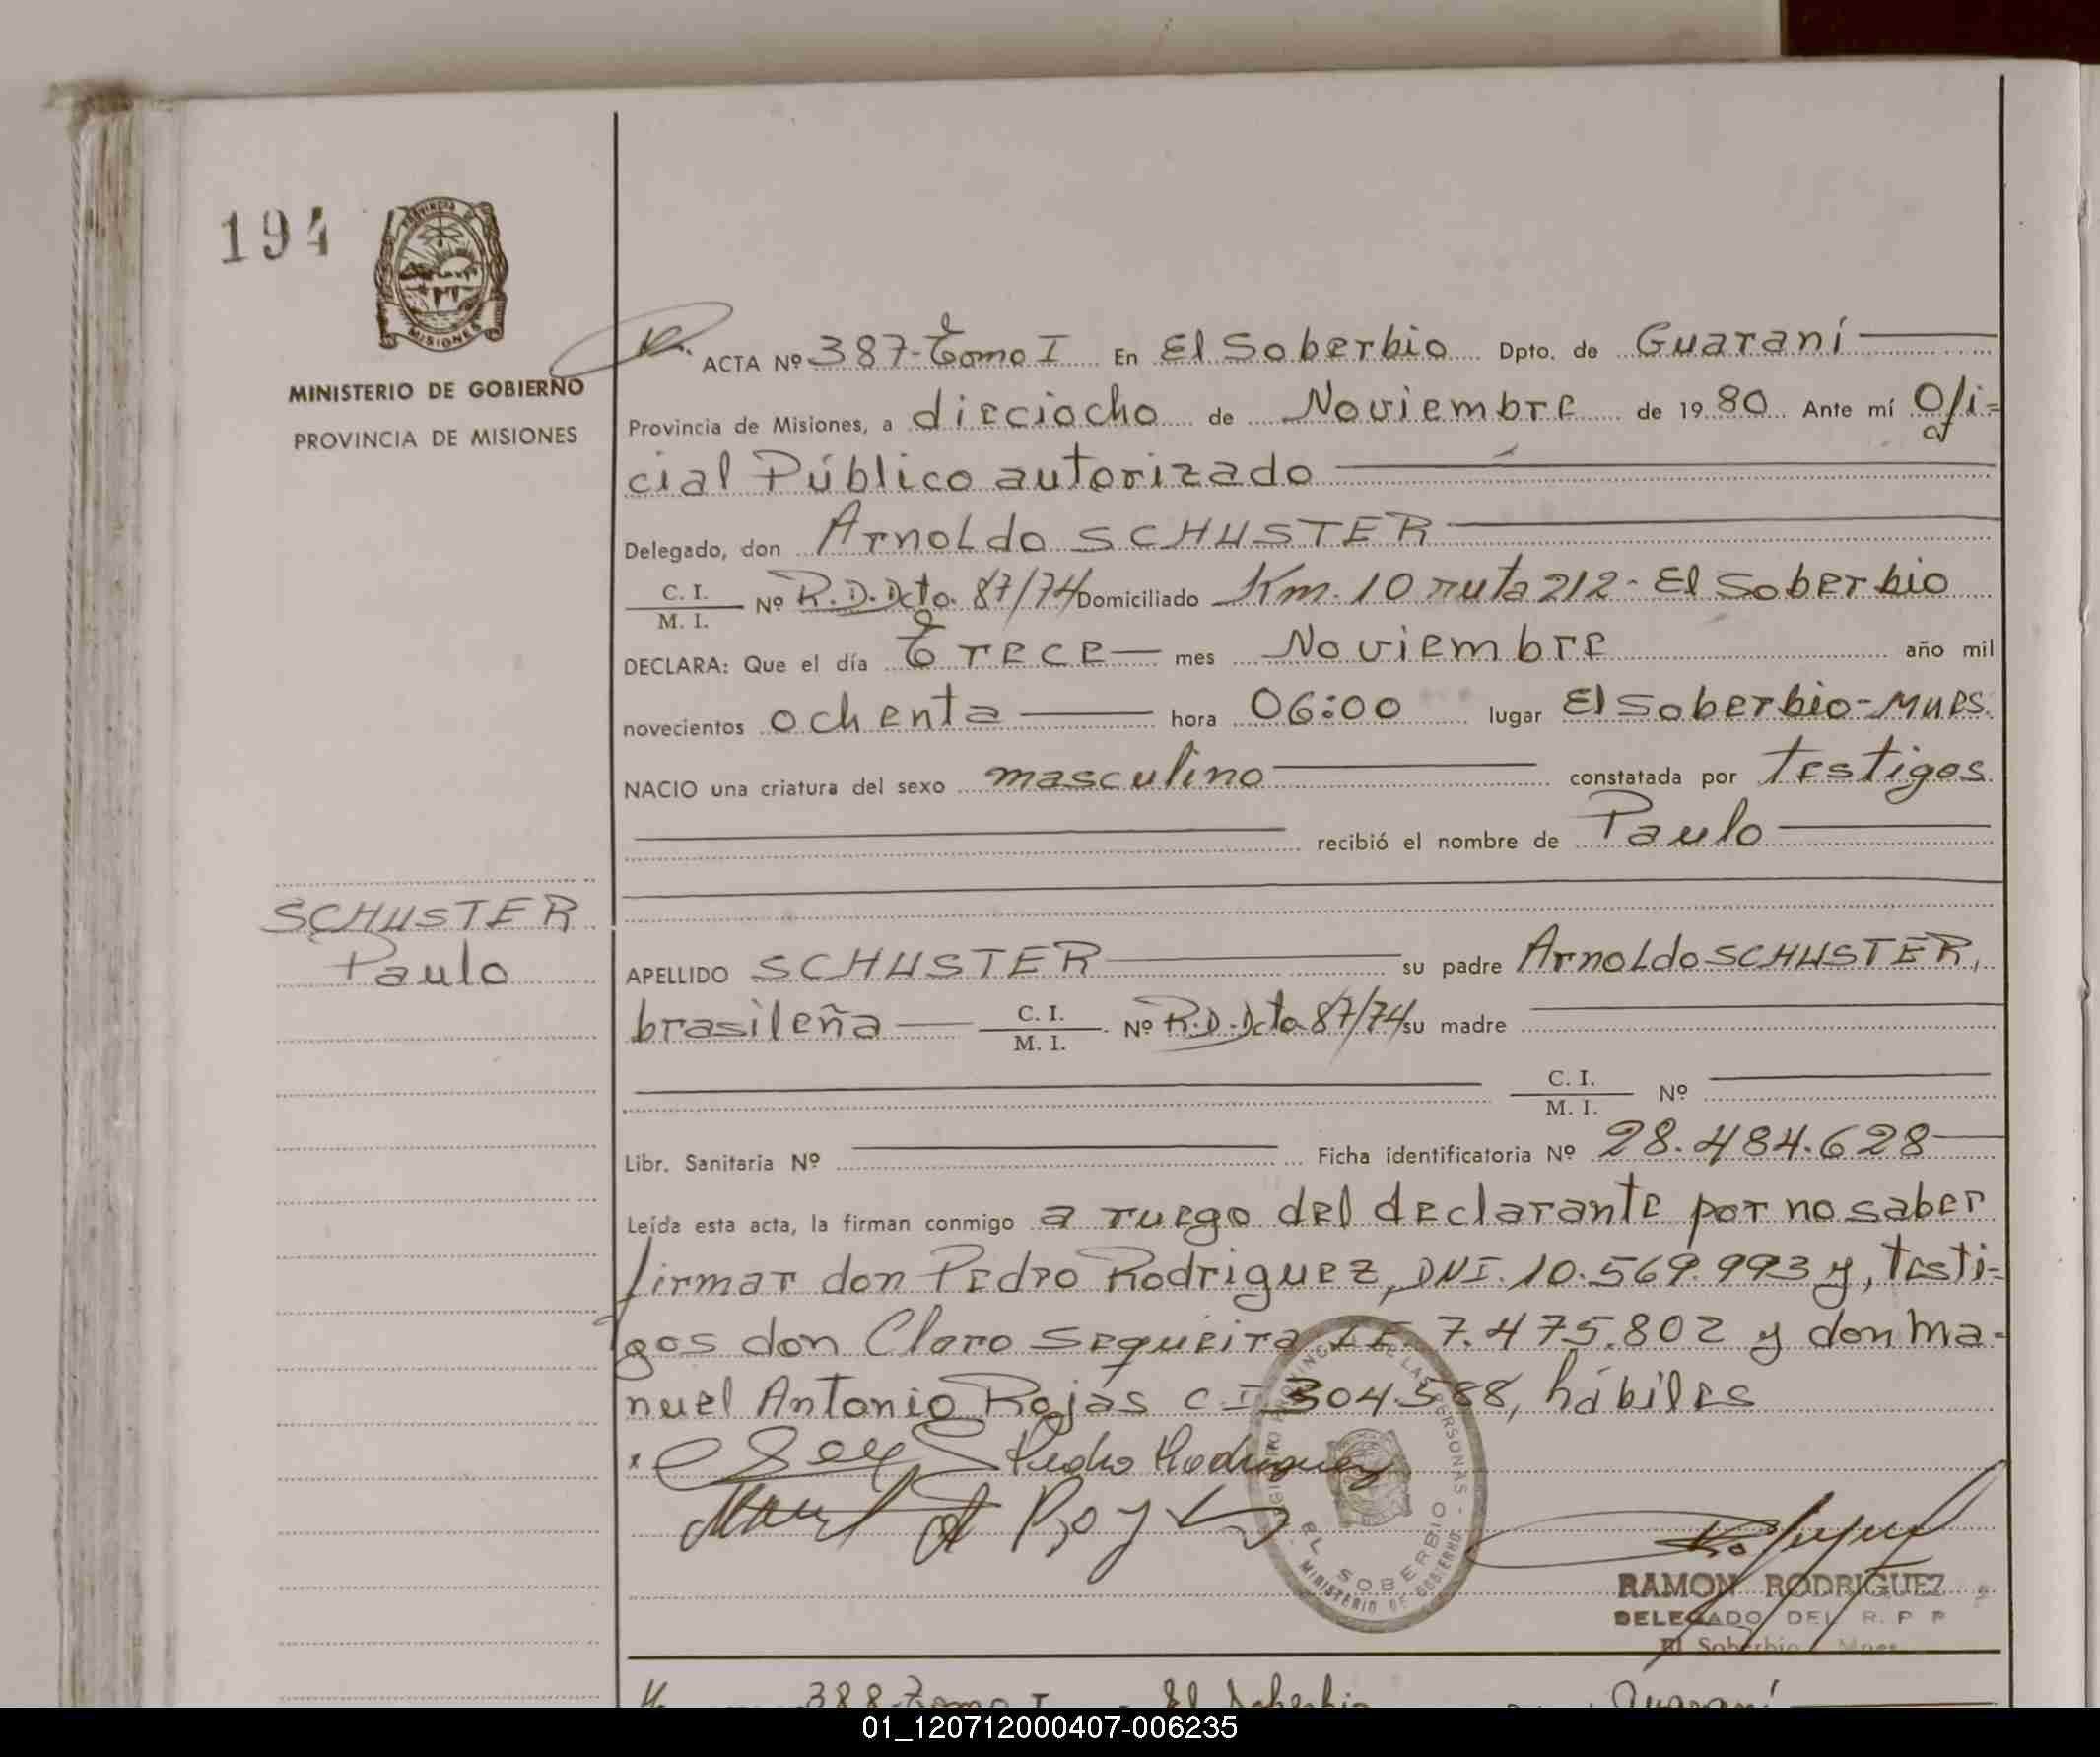 194
PROVINCIA DE
MISIONES
MINISTERIO DE GOBIERNO
PROVINCIA DE MISIONES
ACTA Nº 387-Tomo I En El Soberbio Dpto. de Guaraní
Provincia de Misiones, a dieciocho de Noviembre de 1980 Ante mí Ofi=
cial Público autorizado
Delegado, don Arnoldo SCHUSTER
C. I.
M. I. Nº R.D.Dcto. 87/74 Domiciliado Km. 10 ruta 212- El Soberbio
DECLARA: Que el día Trece mes Noviembre año mil
novecientos ochenta hora 06:00 lugar El Soberbio-Mnes.
NACIO una criatura del sexo masculino constatada por testigos
recibió el nombre de Paulo
SCHUSTER
Paulo
APELLIDO SCHUSTER su padre Arnoldo SCHUSTER,
brasileña C. I.
M. I. Nº R.D.Dcto 87/74 su madre
C. I.
M. I. Nº
Libr. Sanitaria Nº Ficha identificatoria Nº 28.484.628
Leída esta acta, la firman conmigo a ruego del declarante por no saber
firmar don Pedro Rodriguez, DNI. 10.569.993 y, testi=
gos don Claro Sequeira L.E. 7.475.802 y don Ma-
nuel Antonio Rojas C I 304.588, hábiles
Pedro Rodriguez
Manuel A Rojas
REGISTRO PROVINCIAL DE LAS PERSONAS
EL SOBERBIO
MINISTERIO DE GOBIERNO
RAMON RODRIGUEZ
DELEGADO DEL R. P P
El Soberbio Mnes
388-Tomo I El Soberbio Guaraní
01_120712000407-006235